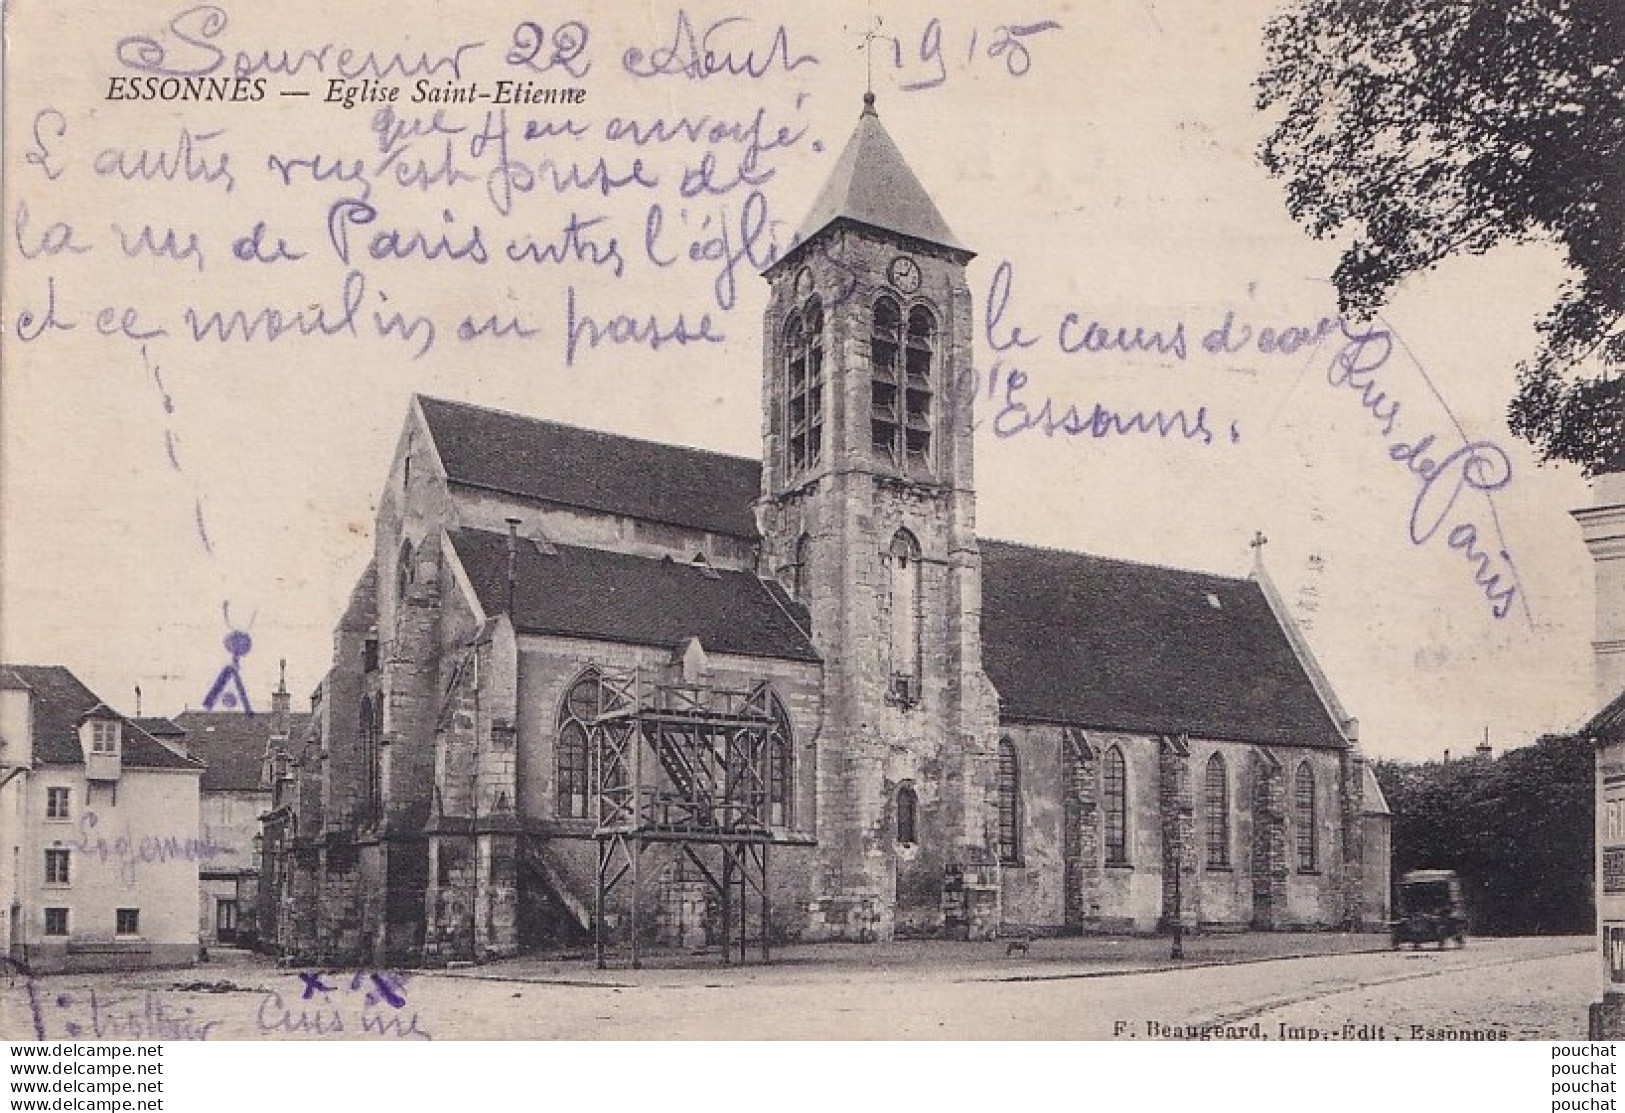 Souvenir 22 Aout 1915
ESSONNES — Eglise Saint-Etienne
que en envoyé.
L'autre vue est prise de
la rue de Paris entre l'église
et ce moulin ou passe le cours d'eau
l'Essonne.
Rue de Paris
Logement
Cuisine
F. Beaugeard, Imp.-Edit., Essonnes
www.delcampe.net pouchat
www.delcampe.net pouchat
www.delcampe.net pouchat
www.delcampe.net pouchat